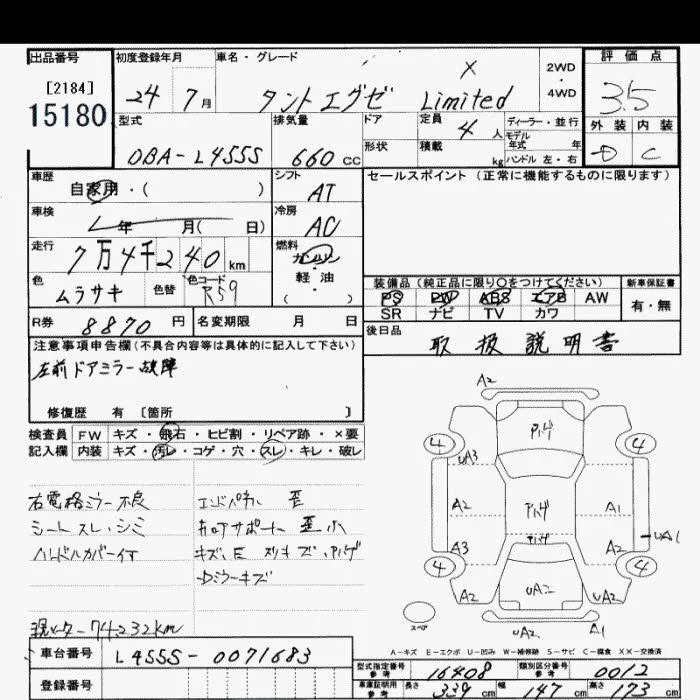 出品番号
[2184]
15180
初度登録年月
24年 7月
車名・グレード
タントエグゼ Limited
2WD
・
4WD
評価点
3.5
外装 内装
D C
型式
DBA-L455S
排気量
660 cc
ドア
形状
定員
4 人
積載
kg
ディーラー・並行
モデル
年式 年
ハンドル 左・右
車歴
自家用・( )
シフト
AT
車検
年 月( 日)
冷房
AC
走行
7万4千240 km
燃料
ガソリン
・
軽・油
( )
色
ムラサキ
色替
色コード
R59
セールスポイント(正常に機能するものに限ります)
装備品(純正品に限り○をつけてください)
PS PW ABS エアB AW
SR ナビ TV カワ
新車保証書
有・無
R券
8870 円
名変期限 月 日
後日品
取扱説明書
注意事項申告欄(不具合内容等は具体的に記入して下さい)
左前ドアミラー故障
修復歴 有 〔箇所 〕
検査員
記入欄
FW キズ・飛石・ヒビ割・リペア跡・×要
内装 キズ・汚レ・コゲ・穴・スレ・キレ・破レ
右電格ミラー不良
シートスレ・シミ
ハンドルカバー付
エンドパネル 歪
歪小
現メーター74232km
A2
4
4
UA3
A2
A1
A3
A2
UA1
4
4
A2
UA2
UA2
スペア
UA2
A1
A-キズ E-エクボ U-凹み W-補修跡 S-サビ C-腐食 XX-交換済
車台番号
L455S-0071683
登録番号
型式指定番号
参考
16408
類別区分番号
参考
0012
車庫証明用
参考
長さ 339 cm 幅 147 cm 高さ 173 cm